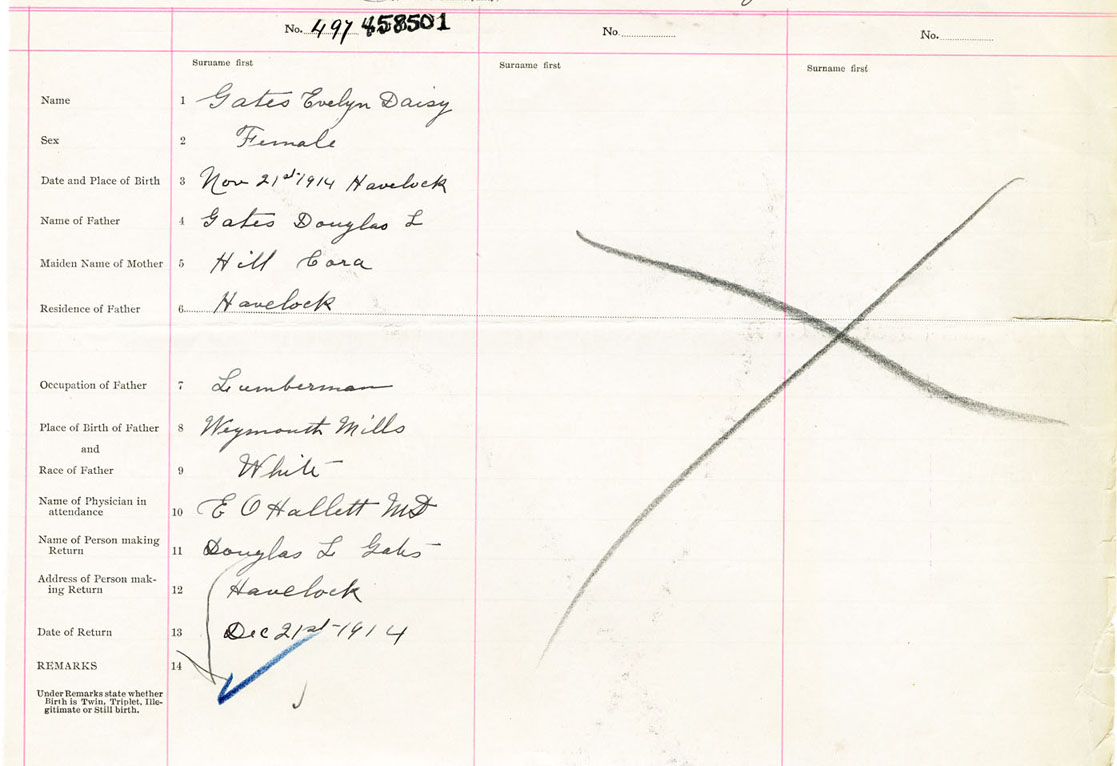 No. 497 458501
No.
No.
Surname first
Surname first
Surname first
Name 1 Gates Evelyn Daisy
Sex 2 Female
Date and Place of Birth 3 Nov 21st 1914 Havelock
Name of Father 4 Gates Douglas L
Maiden Name of Mother 5 Hill Cora
Residence of Father 6 Havelock
Occupation of Father 7 Lumberman
Place of Birth of Father 8 Weymouth Mills
and
Race of Father 9 White
Name of Physician in
attendance 10 E O Hallett MD
Name of Person making
Return 11 Douglas L Gates
Address of Person mak-
ing Return 12 Havelock
Date of Return 13 Dec 21st-1914
REMARKS 14
Under Remarks state whether
Birth is Twin, Triplet, Ille-
gitimate or Still birth.